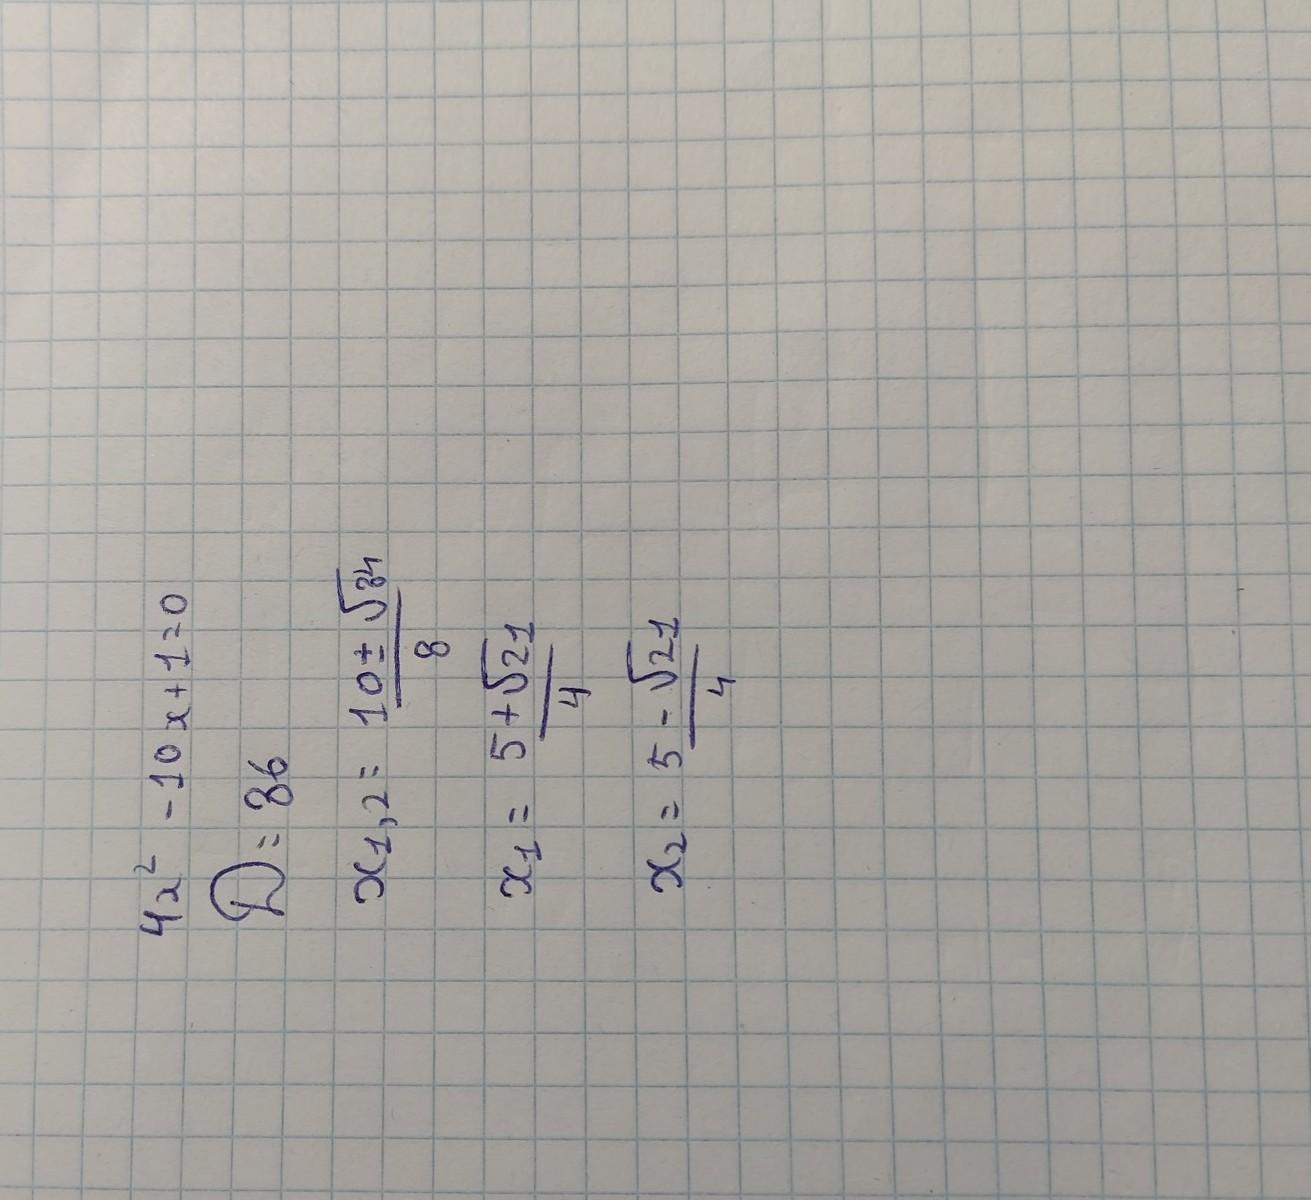 4x² - 10x + 1 = 0
D = 86
x1,2 = (10 ± √84)/8
x1 = (5 + √21)/4
x2 = (5 - √21)/4